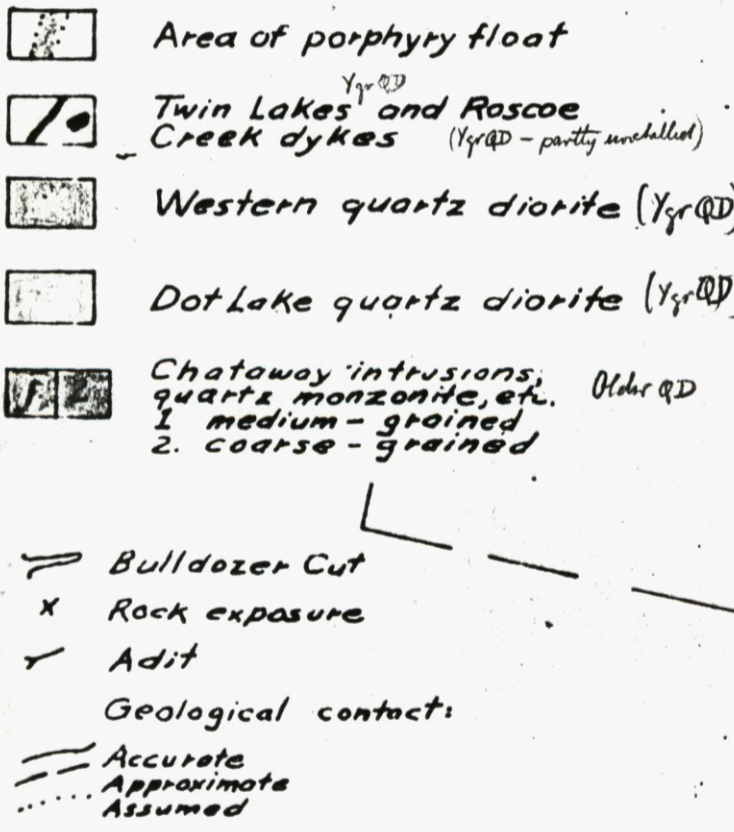 Area of porphyry float
Ygr QD
Twin Lakes and Roscoe
Creek dykes (Ygr QD - partly
Western quartz diorite (Ygr QD)
Dot Lake quartz diorite (Ygr QD)
Chataway intrusions,
quartz monzonite, etc. Older QD
1 medium - grained
2. coarse - grained
Bulldozer Cut
x Rock exposure
Adit
Geological contact:
Accurate
Approximate
Assumed